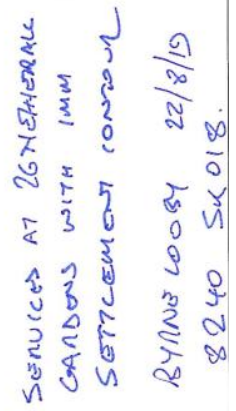 SERVICES AT 26 NETHERHALL
GARDENS WITH 1MM
SETTLEMENT CONTOUR
BYRNE LOOBY 22/8/19
8240 SK018.